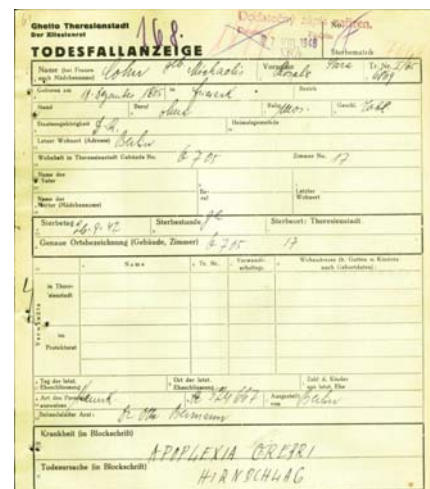 Ghetto Theresienstadt
Der Ältestenrat
168.
TODESFALLANZEIGE
Sterbematrik
Name (bei Frauen auch Mädchenname) Cohn geb. Michaelis Vorname Rosalie Sara Tr. Nr.
Geboren am 1865 in Bezirk
Stand Beruf ohne Relig. mos. Geschl.
Staatsangehörigkeit D.R. Heimatsgemeinde
Letzter Wohnort (Adresse) Berlin
Wohnhaft in Theresienstadt Gebäude No. Q 705 Zimmer No. 17
Name des Vaters Beruf Letzter Wohnort
Name der Mutter (Mädchenname)
Sterbetag 26.9.42 Sterbestunde Sterbeort: Theresienstadt
Genaue Ortsbezeichnung (Gebäude, Zimmer) Q 705 17
Name Tr. Nr. Verwandtschaftsgr. Wohnadresse (b. Gatten u. Kindern auch Geburtsdaten)
Verwandte
in Theresienstadt
im Protektorat
Tag der letzt. Eheschliessung Ort der letzt. Eheschliessung Zahl d. Kinder aus letzt. Ehe
Art des Personalausweises Kennk. Ausgestellt von Berlin
Behandelnder Arzt: Dr Otto
Krankheit (in Blockschrift)
APOPLEXIA CEREBRI
Todesursache (in Blockschrift)
HIRNSCHLAG